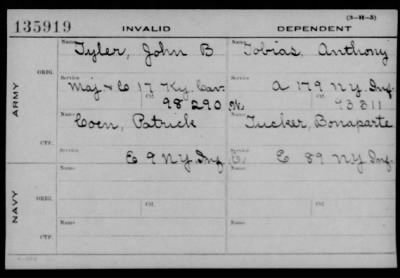 (3-H-5)
135919 INVALID DEPENDENT
Name Tyler, John B Name Tobias, Anthony
ORIG.
Service Maj & C 17 Ky. Cav. Service A 179 N.Y. Inf.
Ctf. 98290 Ctf.
ARMY
Name Coen, Patrick Name Tucker, Bonaparte
CTF.
Service E 9 N Y Inf. E 89 N Y Inf.
Name Name
ORIG.
Ctf. Ctf.
NAVY
Name Name
CTF.